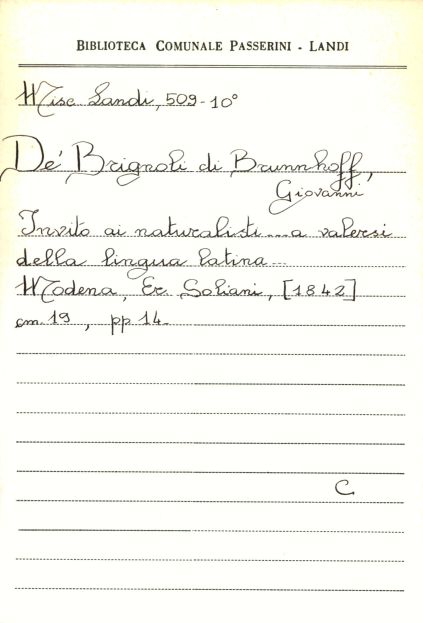 BIBLIOTECA COMUNALE PASSERINI - LANDI
Misc Landi, 509-10°
De' Brignoli di Brunnhoff,
Giovanni
Invito ai naturalisti ... a valersi
della lingua latina ...
Modena, Er. Soliani, [1842]
cm. 19, pp 14.
C